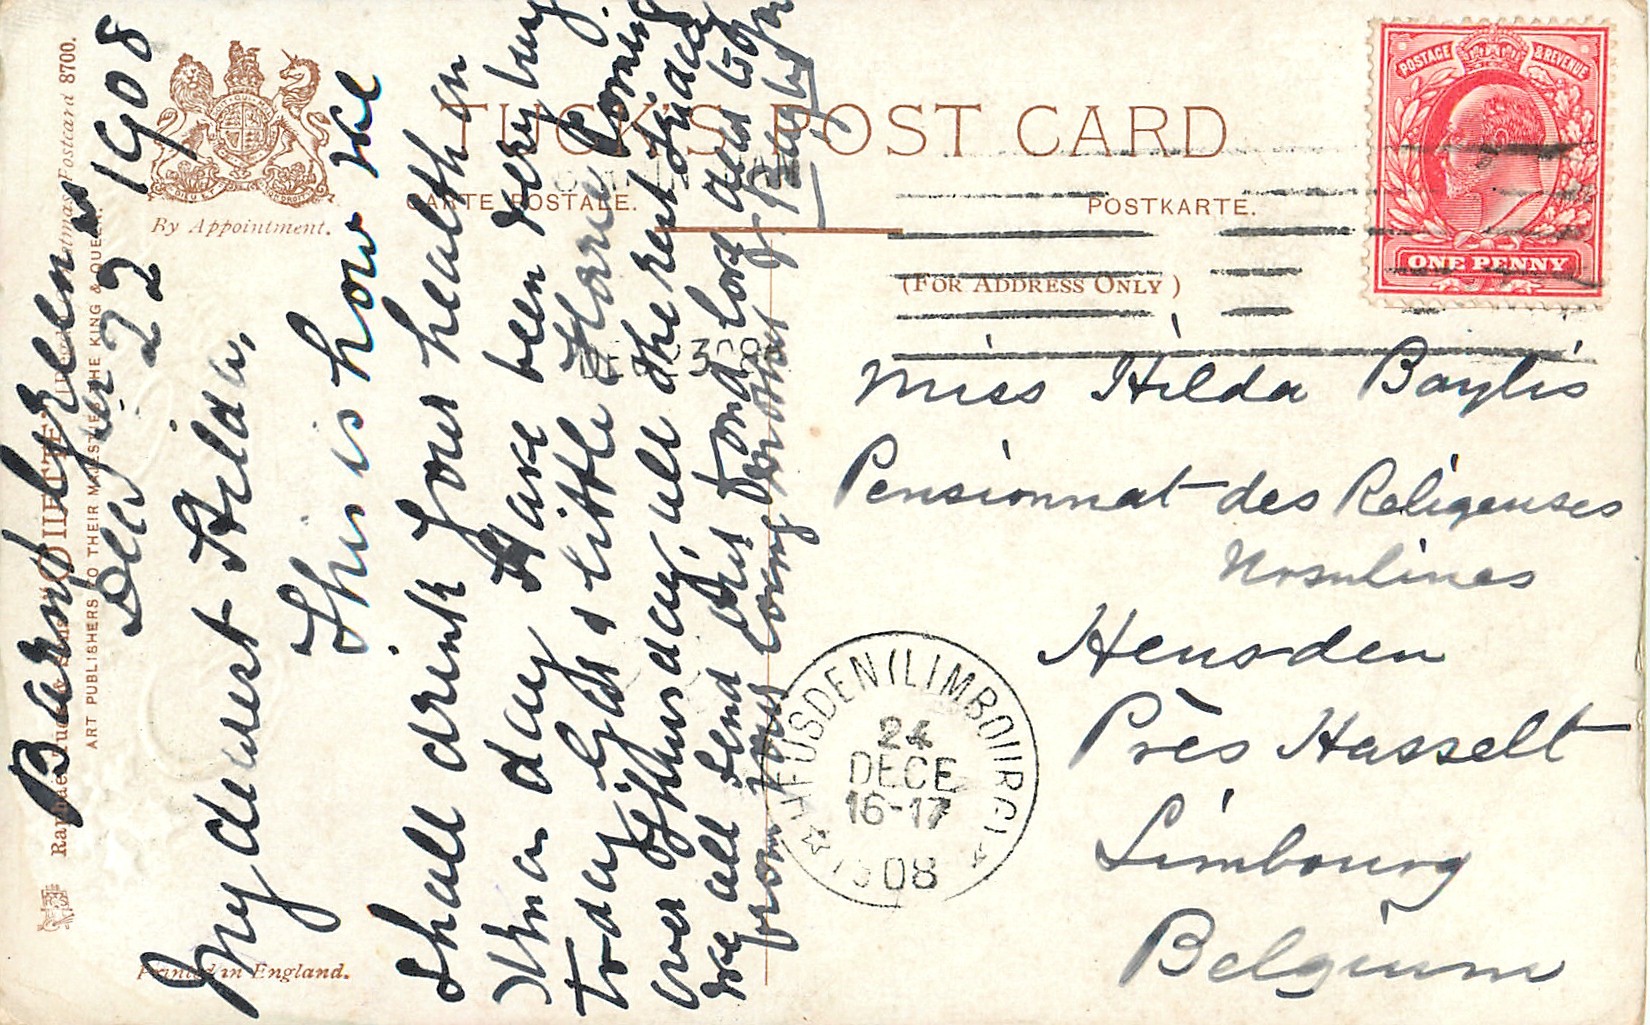 TUCK'S POST CARD
CARTE POSTALE.
POSTKARTE.
(FOR ADDRESS ONLY)
By Appointment.
POSTAGE & REVENUE
ONE PENNY
Miss Hilda Baylis
Pensionnat des Religeuses
Ursulines
Heusden
Près Hasselt
Limbourg
Belgium
HEUSDEN (LIMBOURG)
24
DECE
16-17
1908
Barnt Green
Decr 22nd 1908
My dearest Hilda,
This is how we
shall drink your health on
Xmas day Have been very busy
today Glad & little Clare coming
over Thursday, all the rest Friday
we all send best fond love and to you
from your loving brother
Raphael Tuck & Sons' "OILETTE"
Christmas Postcard 8700.
ART PUBLISHERS TO THEIR MAJESTIES THE KING & QUEEN.
Printed in England.